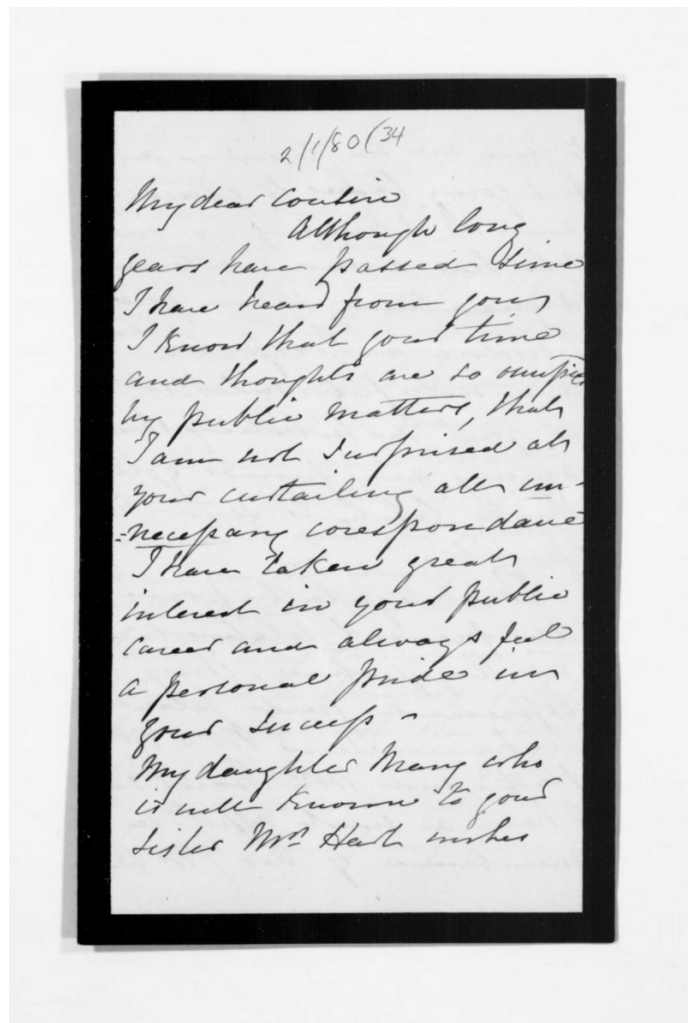 2/1/80(34
My dear Cousin
Although long
years have passed since
I have heard from you,
I know that your time
and thoughts are so occupied
by public matters, that
I am not surprised at
your curtailing all un-
-necessary corespondance
I have taken great
interest in your public
career and always feel
a personal pride in
your success -
My daughter Mary who
is well known to your
sister Mrs Hart wishes